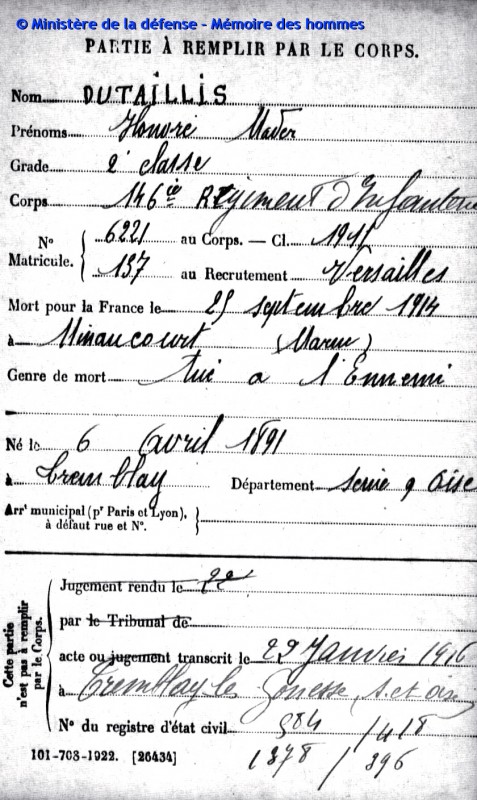 © Ministère de la défense - Mémoire des hommes
PARTIE À REMPLIR PAR LE CORPS.
Nom DUTAILLIS
Prénoms Honoré
Grade 2e classe
Corps 146 ième Régiment d'Infanterie
N° Matricule. { 6221 au Corps. — Cl. 1911
137 au Recrutement Versailles
Mort pour la France le 25 septembre 1914
à Minaucourt (Marne)
Genre de mort tué à l'Ennemi
Né le 6 avril 1891
à Tremblay Département Seine & Oise
Arrt municipal (pr Paris et Lyon), à défaut rue et N°.
Cette partie n'est pas à remplir par le Corps.
Jugement rendu le
par le Tribunal de
acte ou jugement transcrit le 29 Janvier 1916
à Tremblay les Gonesse S. et Oise
N° du registre d'état civil 984 / 418
1378 / 396
101-708-1922. [26434]